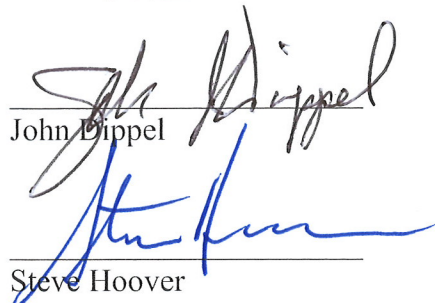 John Dippel
John Dippel
Steve Hoover
Steve Hoover